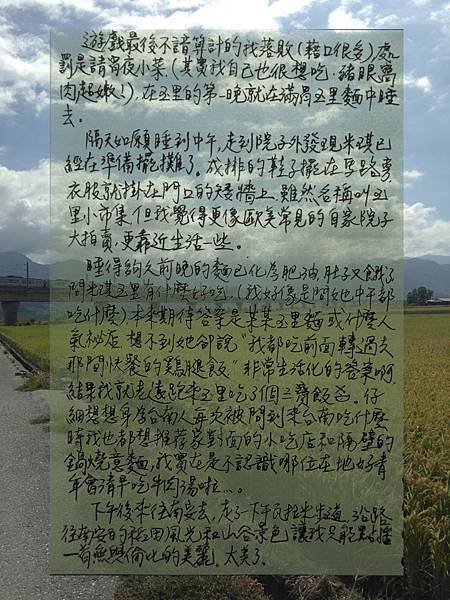 遊戲最後不諳算計的我落敗(藉口很多)處
罰是請宵夜小菜(其實我自己也很想吃,豬眼窩
肉起嫩!),在玉里的第一晚就在滿滿玉里麵中睡
去。
隔天如願睡到中午,走到院子外發現米琪已
經在準備擺攤了。成排的鞋子擺在馬路旁
衣服就掛在門口的矮牆上,雖然名稱叫玉
里小市集,但我覺得更像歐美常見的自家院子
大拍賣,更靠近生活一些。
睡得夠久前晚的麵已化為肥油,肚子又餓了
問米琪玉里有什麼好吃,(我好像是問她中午都
吃什麼)本來期待答案是某某玉里麵或什麼人
氣秘店,想不到她卻說"我都吃前面轉過去
那間快餐的雞腿飯",非常生活化的答案啊,
結果我就老遠跑來玉里吃了個三寶飯盒。仔
細想想身為台南人每次被問到來台南吃什麼
時我也都想推薦家對面的小吃店和隔壁的
鍋燒意麵,我實在是不認識哪位在地好青
年會清早吃牛肉湯啦...。
下午後來往南安去,走了下瓦拉米步道,沿路
往南安的稻田風光和山谷景色讓我只能點播
一首無與倫比的美麗。太美了.